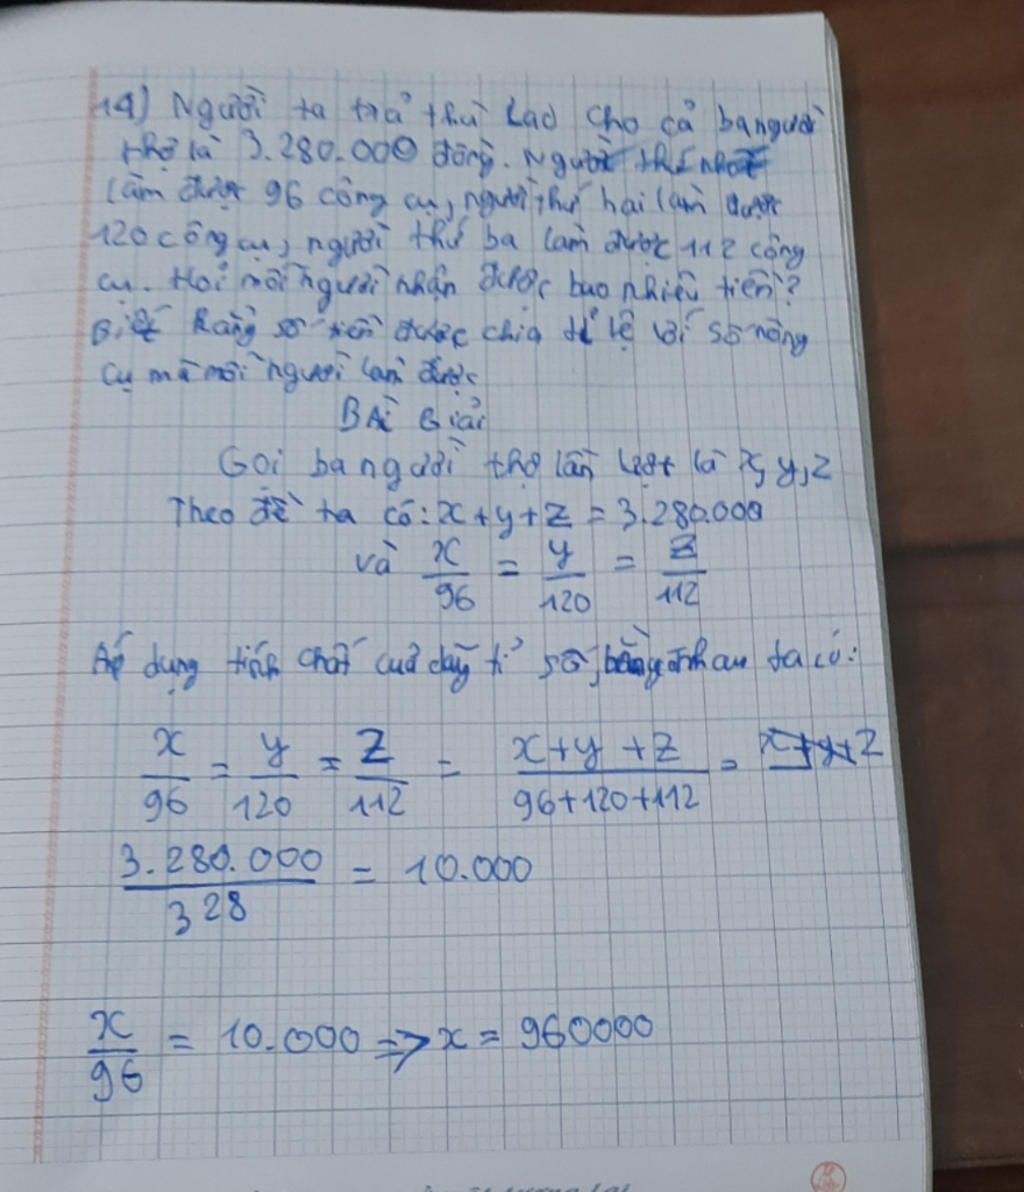 14) Người ta trả thù lao cho cả ba người
thợ là 3.280.000 đồng. Người thứ nhất
làm được 96 công cụ, người thứ hai làm được
120 công cụ, người thứ ba làm được 112 công
cụ. Hỏi mỗi người nhận được bao nhiêu tiền?
Biết Rằng số tiền được chia tỉ lệ với số nông
cụ mà mỗi người làm được
BÀi Giải
Gọi ba người thợ lần lượt là x, y, z
Theo đề ta có: x + y + z = 3.280.000
và x/96 = y/120 = z/112
Áp dụng tính chất của dãy tỉ số bằng nhau ta có:
x/96 = y/120 = z/112 = (x + y + z)/(96 + 120 + 112) = x + y + z
3.280.000/328 = 10.000
x/96 = 10.000 => x = 960000